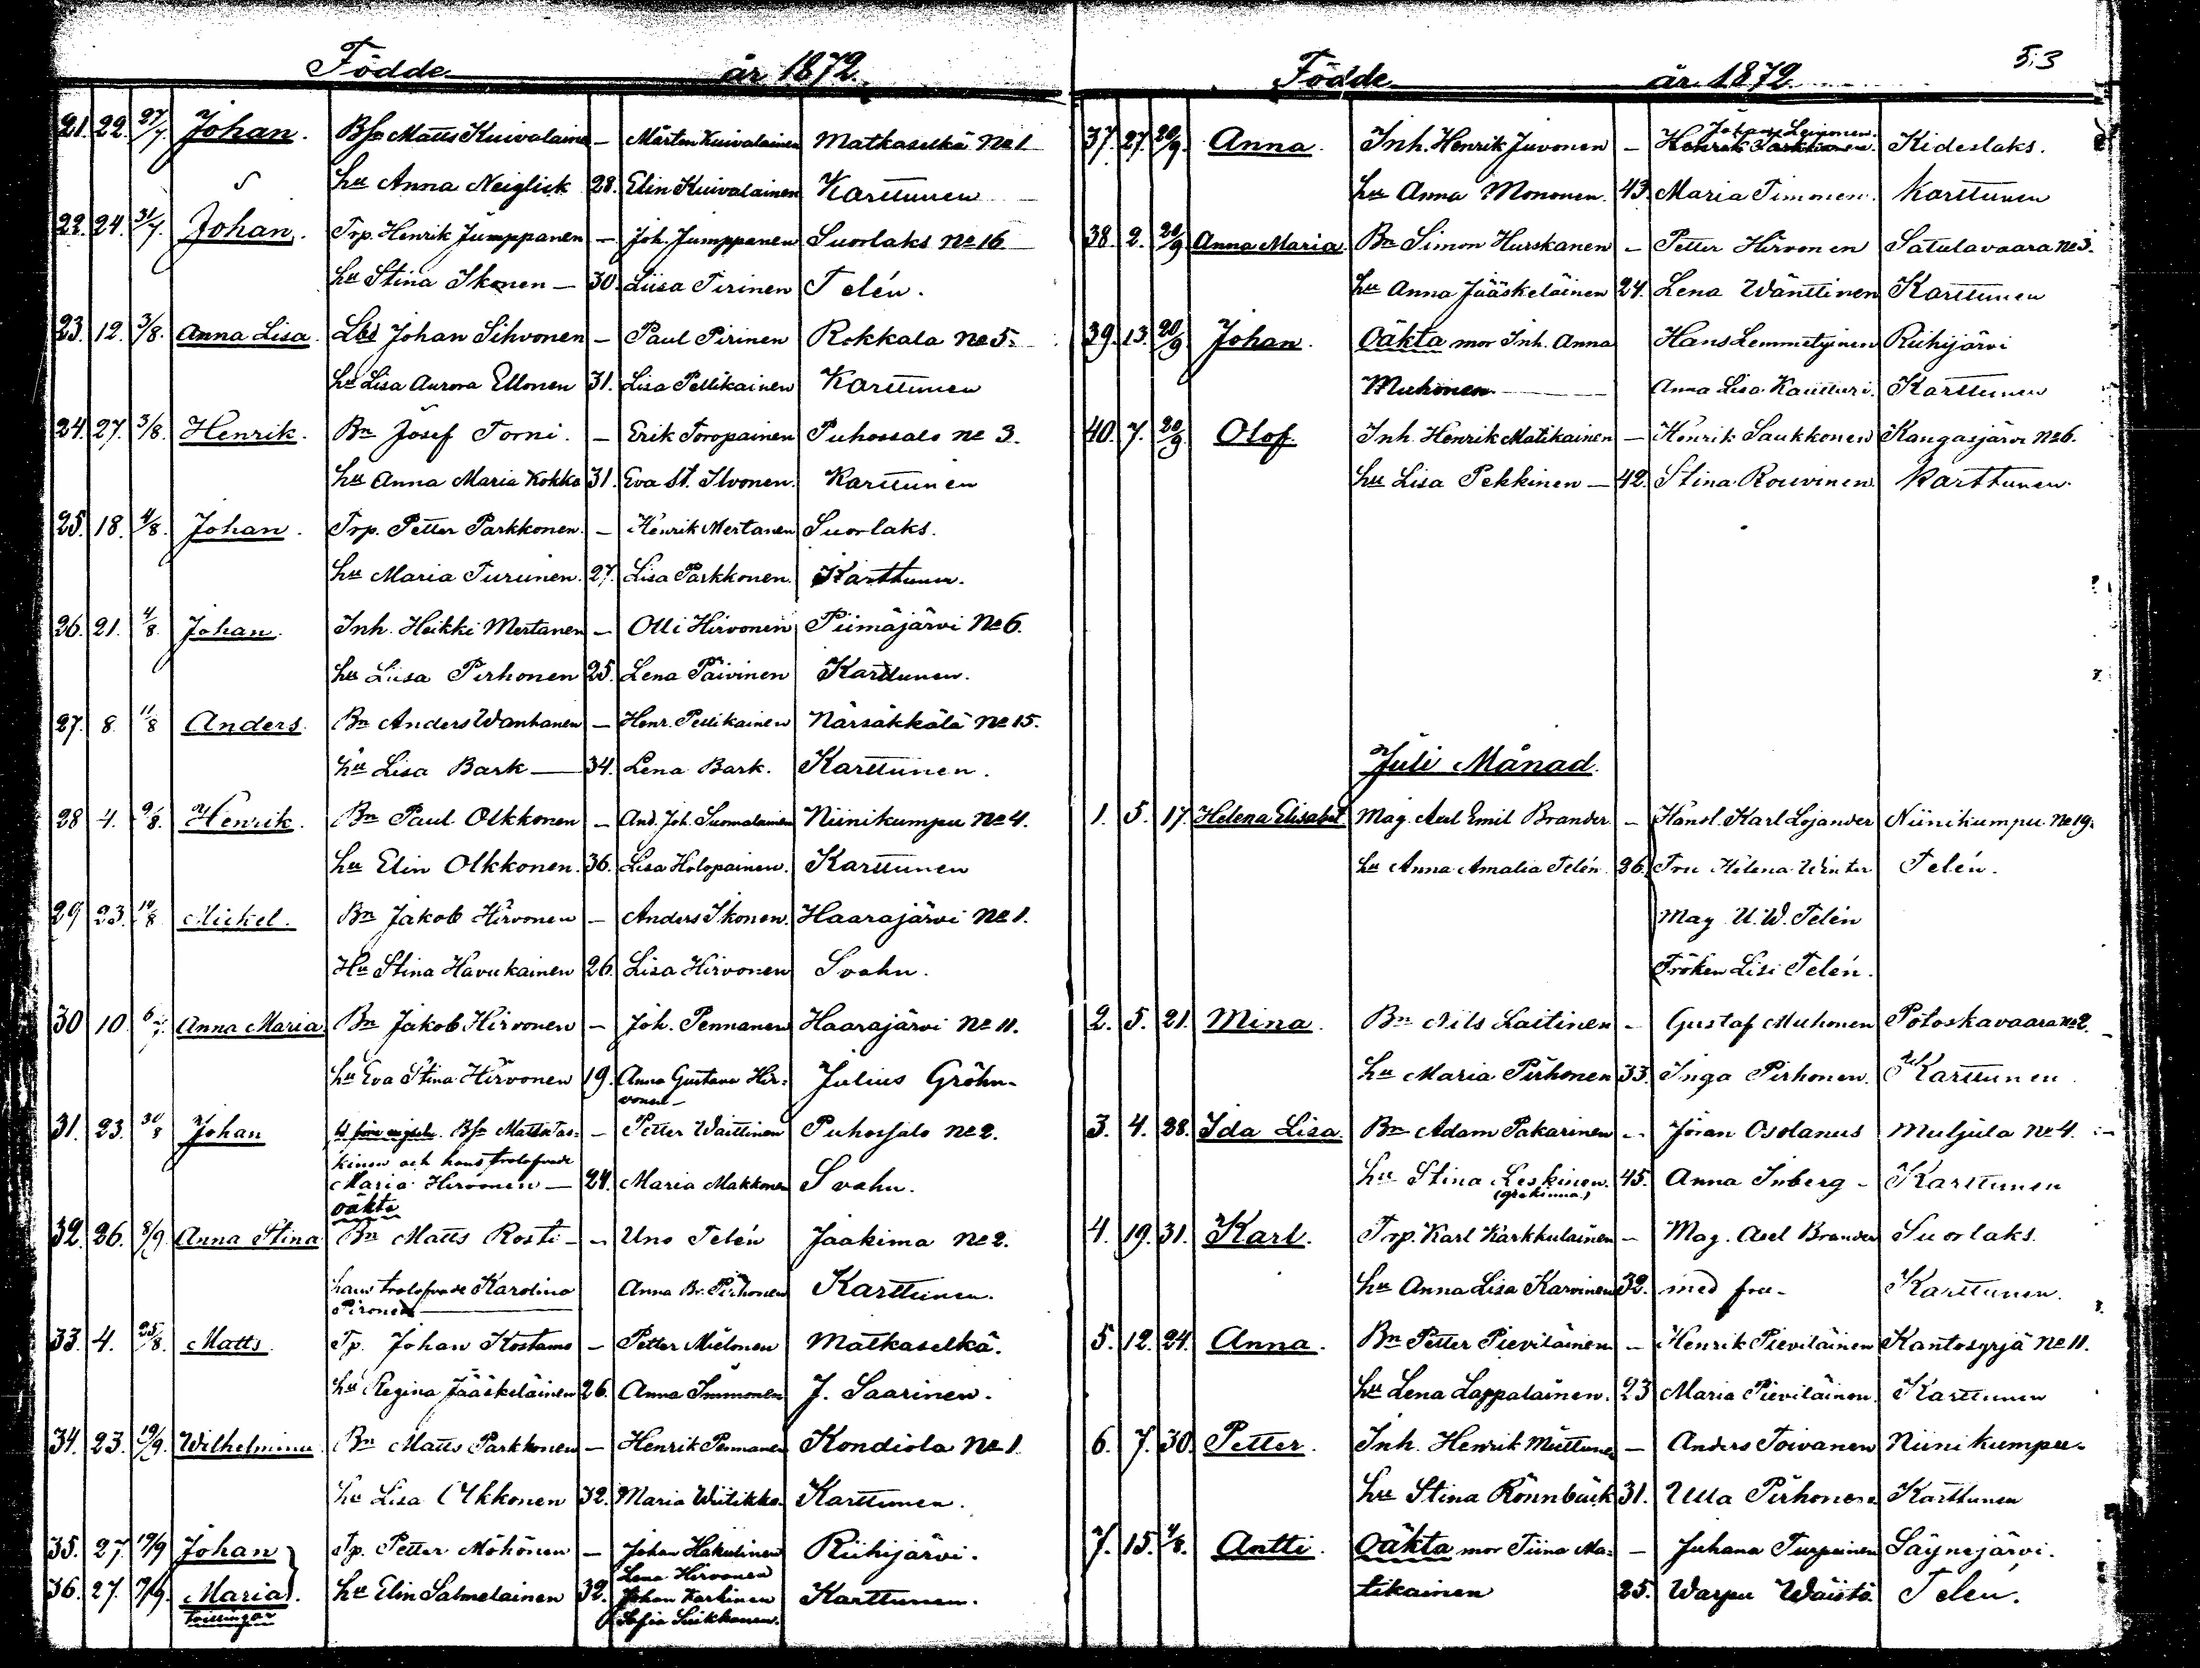 Födde år 1872.
21. 22. 27/7. Johan. Bso Matts Kuivalainen – Mårten Kuivalainen Matkaselkä No 1
hu Anna Neiglick 28. Elin Kuivalainen Karttunen
22. 24. 31/7. Johan. Trp. Henrik Jumppanen – Joh. Jumppanen Suorlaks No 16
hu Stina Ikonen – 30. Liisa Pirinen Telén.
23. 12. 3/8. Anna Lisa. Johan Sihvonen – Paul Pirinen Rokkala No 5.
hu Lisa Aurora Ellonen 31. Lisa Pellikainen Karttunen
24. 27. 3/8. Henrik. Bn Josef Torni. – Erik Toropainen Puhossalo No 3.
hu Anna Maria Kokko 31. Eva St. Ilvonen. Karttunen
25. 18. 4/8. Johan. Trp. Petter Parkkonen. – Henrik Mertanen Suorlaks.
hu Maria Turunen. 27. Lisa Parkkonen. Karttunen.
26. 21. 4/8. Johan. Inh. Heikki Mertanen – Olli Hirvonen Piimäjärvi No 6.
hu Liisa Pirhonen 25. Lena Päivinen Karttunen.
27. 8. 11/8 Anders. Bn Anders Wanhanen – Henr. Pellikainen Närsäkkälä No 15.
hu Lisa Bark – 34. Lena Bark. Karttunen.
28 4. 9/8. Henrik. Bn Paul Olkkonen – And. Joh. Suomalainen Niinikumpu No 4.
hu Elin Olkkonen. 36. Lisa Holopainen. Karttunen
29 23. 10/8 Mickel. Bn Jakob Hirvonen – Anders Ikonen. Haarajärvi No 1.
Hu Stina Havukainen 26. Lisa Hirvonen Svahn.
30 10. Anna Maria Bn Jakob Hirvonen – Joh. Pennanen Haarajärvi No 11.
hu Eva Stina Hirvonen 19. Anna Gustava Hir-
vonen – Julius Gröhn.
31. 23. 30/8 Johan Bso Matts Tas- – Petter Waittinen Puhossalo No 2.
kinen och hans trolofvade
Maria Hirvonen – 24. Maria Makkonen Svahn.
oäkta
32. 26. 8/9 Anna Stina Bn Matts Rosti – – Uno Telén Jaakima No 2.
hans trolofvade Karolina Anna Br. Pirhonen Karttunen.
Pironen
33. 4. 25/8. Matts. Tp. Johan Kostamo – Petter Mielonen Matkaselkä.
hu Regina Jääskeläinen 26. Anna Immonen J. Saarinen.
34. 23. 19/9. Wilhelmina. Bn Matts Parkkonen – Henrik Pennanen Kondiola No 1.
hu Lisa Olkkonen 32. Maria Wiitikko. Karttunen.
35. 27. 19/9 Johan Tp. Petter Möhönen – Johan Hakulinen Riihijärvi.
Lena Hirvonen
36. 27. 19/9. Maria. hu Elin Salmelainen 32. Johan Karkinen Karttunen.
tvillingar Sofia Suikkanen.
Födde år 1872. 53
37. 27. 20/9. Anna. Inh. Henrik Juvonen – Johan Leinonen. Kideslaks.
hu Anna Mononen. 43. Maria Timonen. Karttunen
38. 2. 20/9 Anna Maria Bn Simon Hurskanen – Petter Hirvonen Satulavaara No 3.
hu Anna Jääskeläinen 24. Lena Wänttinen Karttunen
39. 13. 20/9 Johan. Oäkta mor Inh. Anna Hans Lemmetyinen Riihijärvi
Muhonen Anna Lisa Kautturi. Karttunen
40. 7. 20/9 Olof. Inh. Henrik Matikainen – Henrik Saukkonen Kangasjärvi No 6.
hu Lisa Pekkinen – 42. Stina Rouvinen. Karttunen.
Juli Månad.
1. 5. 17. Helena Elisabet Mag. Axel Emil Brander. – Handl. Karl Lojander Niinikumpu. No 19.
hu Anna Amalia Telén. 26. Fru Helena Winter Telén.
Mag U. W. Telén
Fröken Lisi Telén.
2. 5. 21. Mina. Bn Nils Laitinen – Gustaf Muhonen Potoskavaara No 2.
hu Maria Pirhonen 33. Inga Pirhonen. Karttunen
3. 4. 28. Ida Lisa. Bn Adam Pakarinen – Jöran Osolanus Muljula No 4.
hu Stina Leskinen. 45. Anna Inberg – Karttunen
(grekinna)
4. 19. 31. Karl. Trp. Karl Karkkulainen – Mag. Axel Brander Suorlaks.
hu Anna Lisa Karvinen 32. med fru. Karttunen.
5. 12. 24. Anna. Bn Petter Pieviläinen – Henrik Pieviläinen Kantosyrjä No 11.
hu Lena Lappalainen. 23 Maria Pieviläinen. Karttunen
6. 7. 30. Petter. Inh. Henrik Muttunen – Anders Toivanen Niinikumpu.
hu Stina Rönnbäck 31. Ulla Pirhonen Karttunen
7. 15. 4/8. Antti. Oäkta mor Tiina Ma- – Juhana Turpeinen Säynejärvi.
tikainen 25. Warpu Wäistö. Telén.